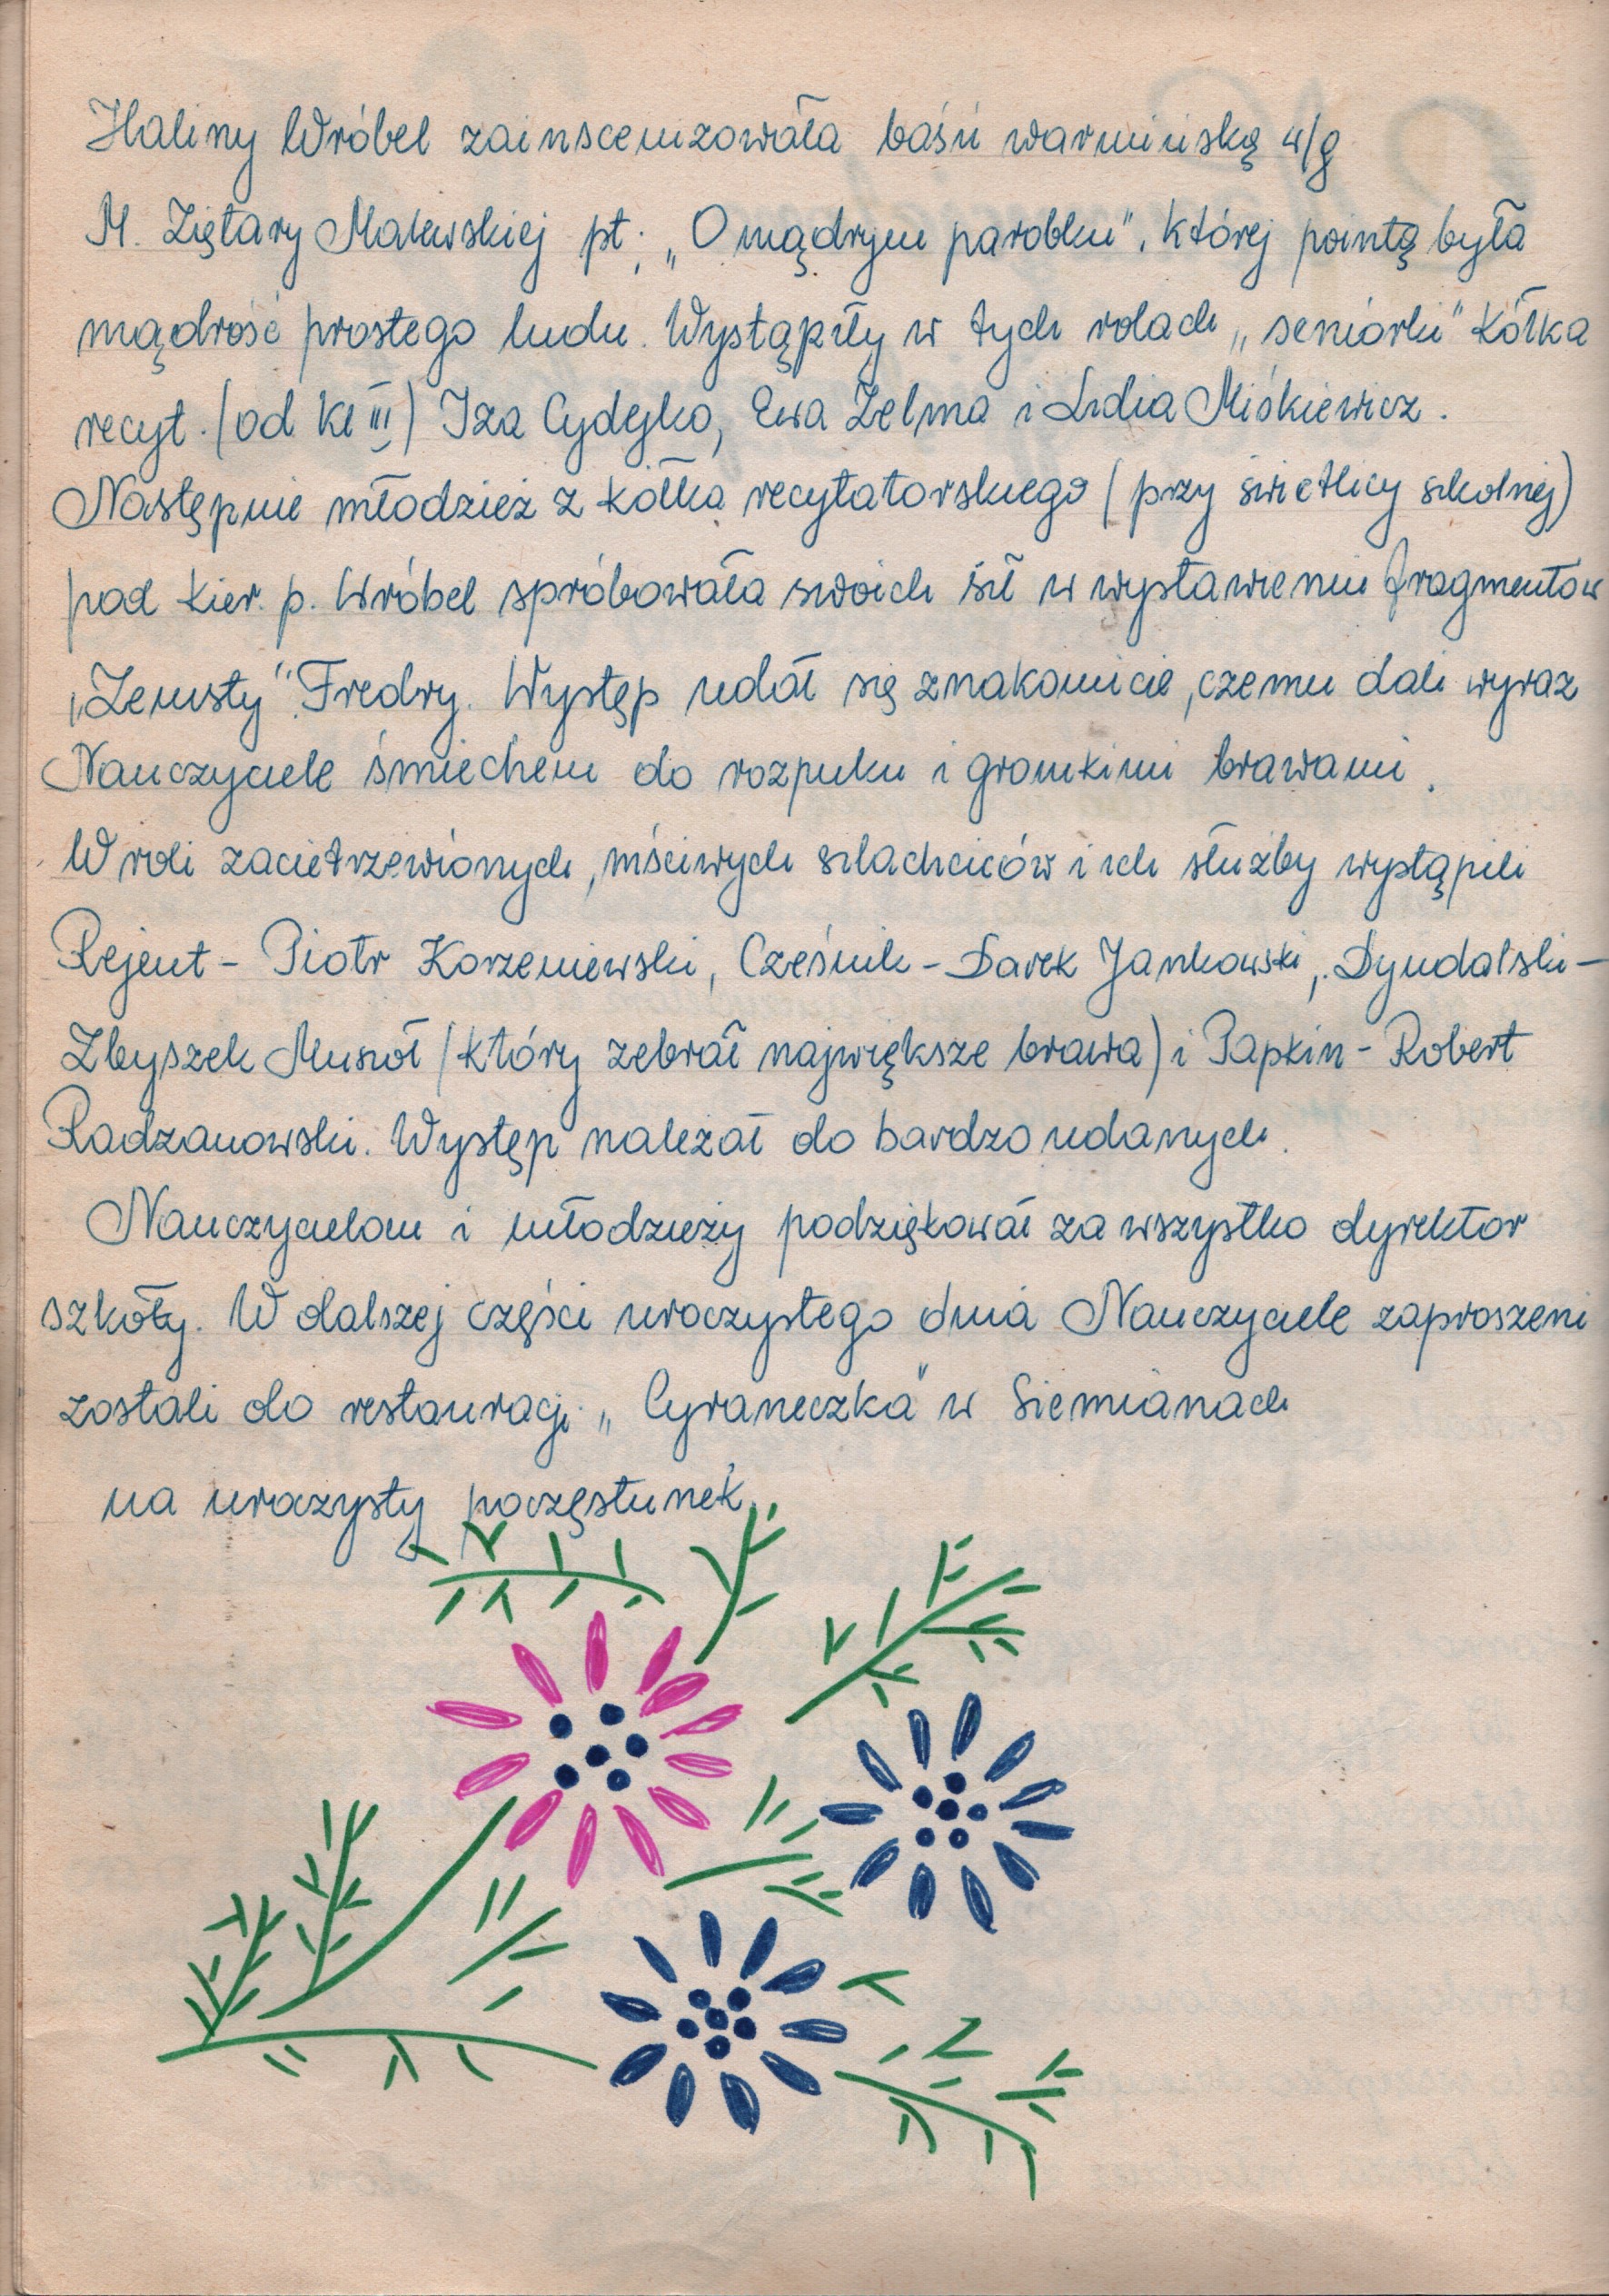 Haliny Wróbel zainscenizowała baśń warmińską w/g
M. Ziętary Malewskiej pt. „O mądrym parobku", której pointą była
mądrość prostego ludu. Wystąpiły w tych rolach „seniorki" kółka
recyt. (od kl III) Iza Cydejko, Ewa Zelma i Lidia Miśkiewicz.
Następnie młodzież z kółka recytatorskiego (przy świetlicy szkolnej)
pod kier. p. Wróbel spróbowała swoich sił w wystawieniu fragmentów
„Zemsty" Fredry. Występ udał się znakomicie, czemu dali wyraz
Nauczyciele śmiechem do rozpuku i gromkimi brawami.
W roli zacietrzewionych, mściwych szlachciców i ich służby wystąpili
Rejent - Piotr Korzeniewski, Cześnik - Darek Jankowski, Dyndalski -
Zbyszek Musiał (który zebrał największe brawa) i Papkin - Robert
Radzanowski. Występ należał do bardzo udanych.
Nauczycielom i młodzieży podziękował za wszystko dyrektor
szkoły. W dalszej części uroczystego dnia Nauczyciele zaproszeni
zostali do restauracji „Cyraneczka" w Siemianach
na uroczysty poczęstunek.